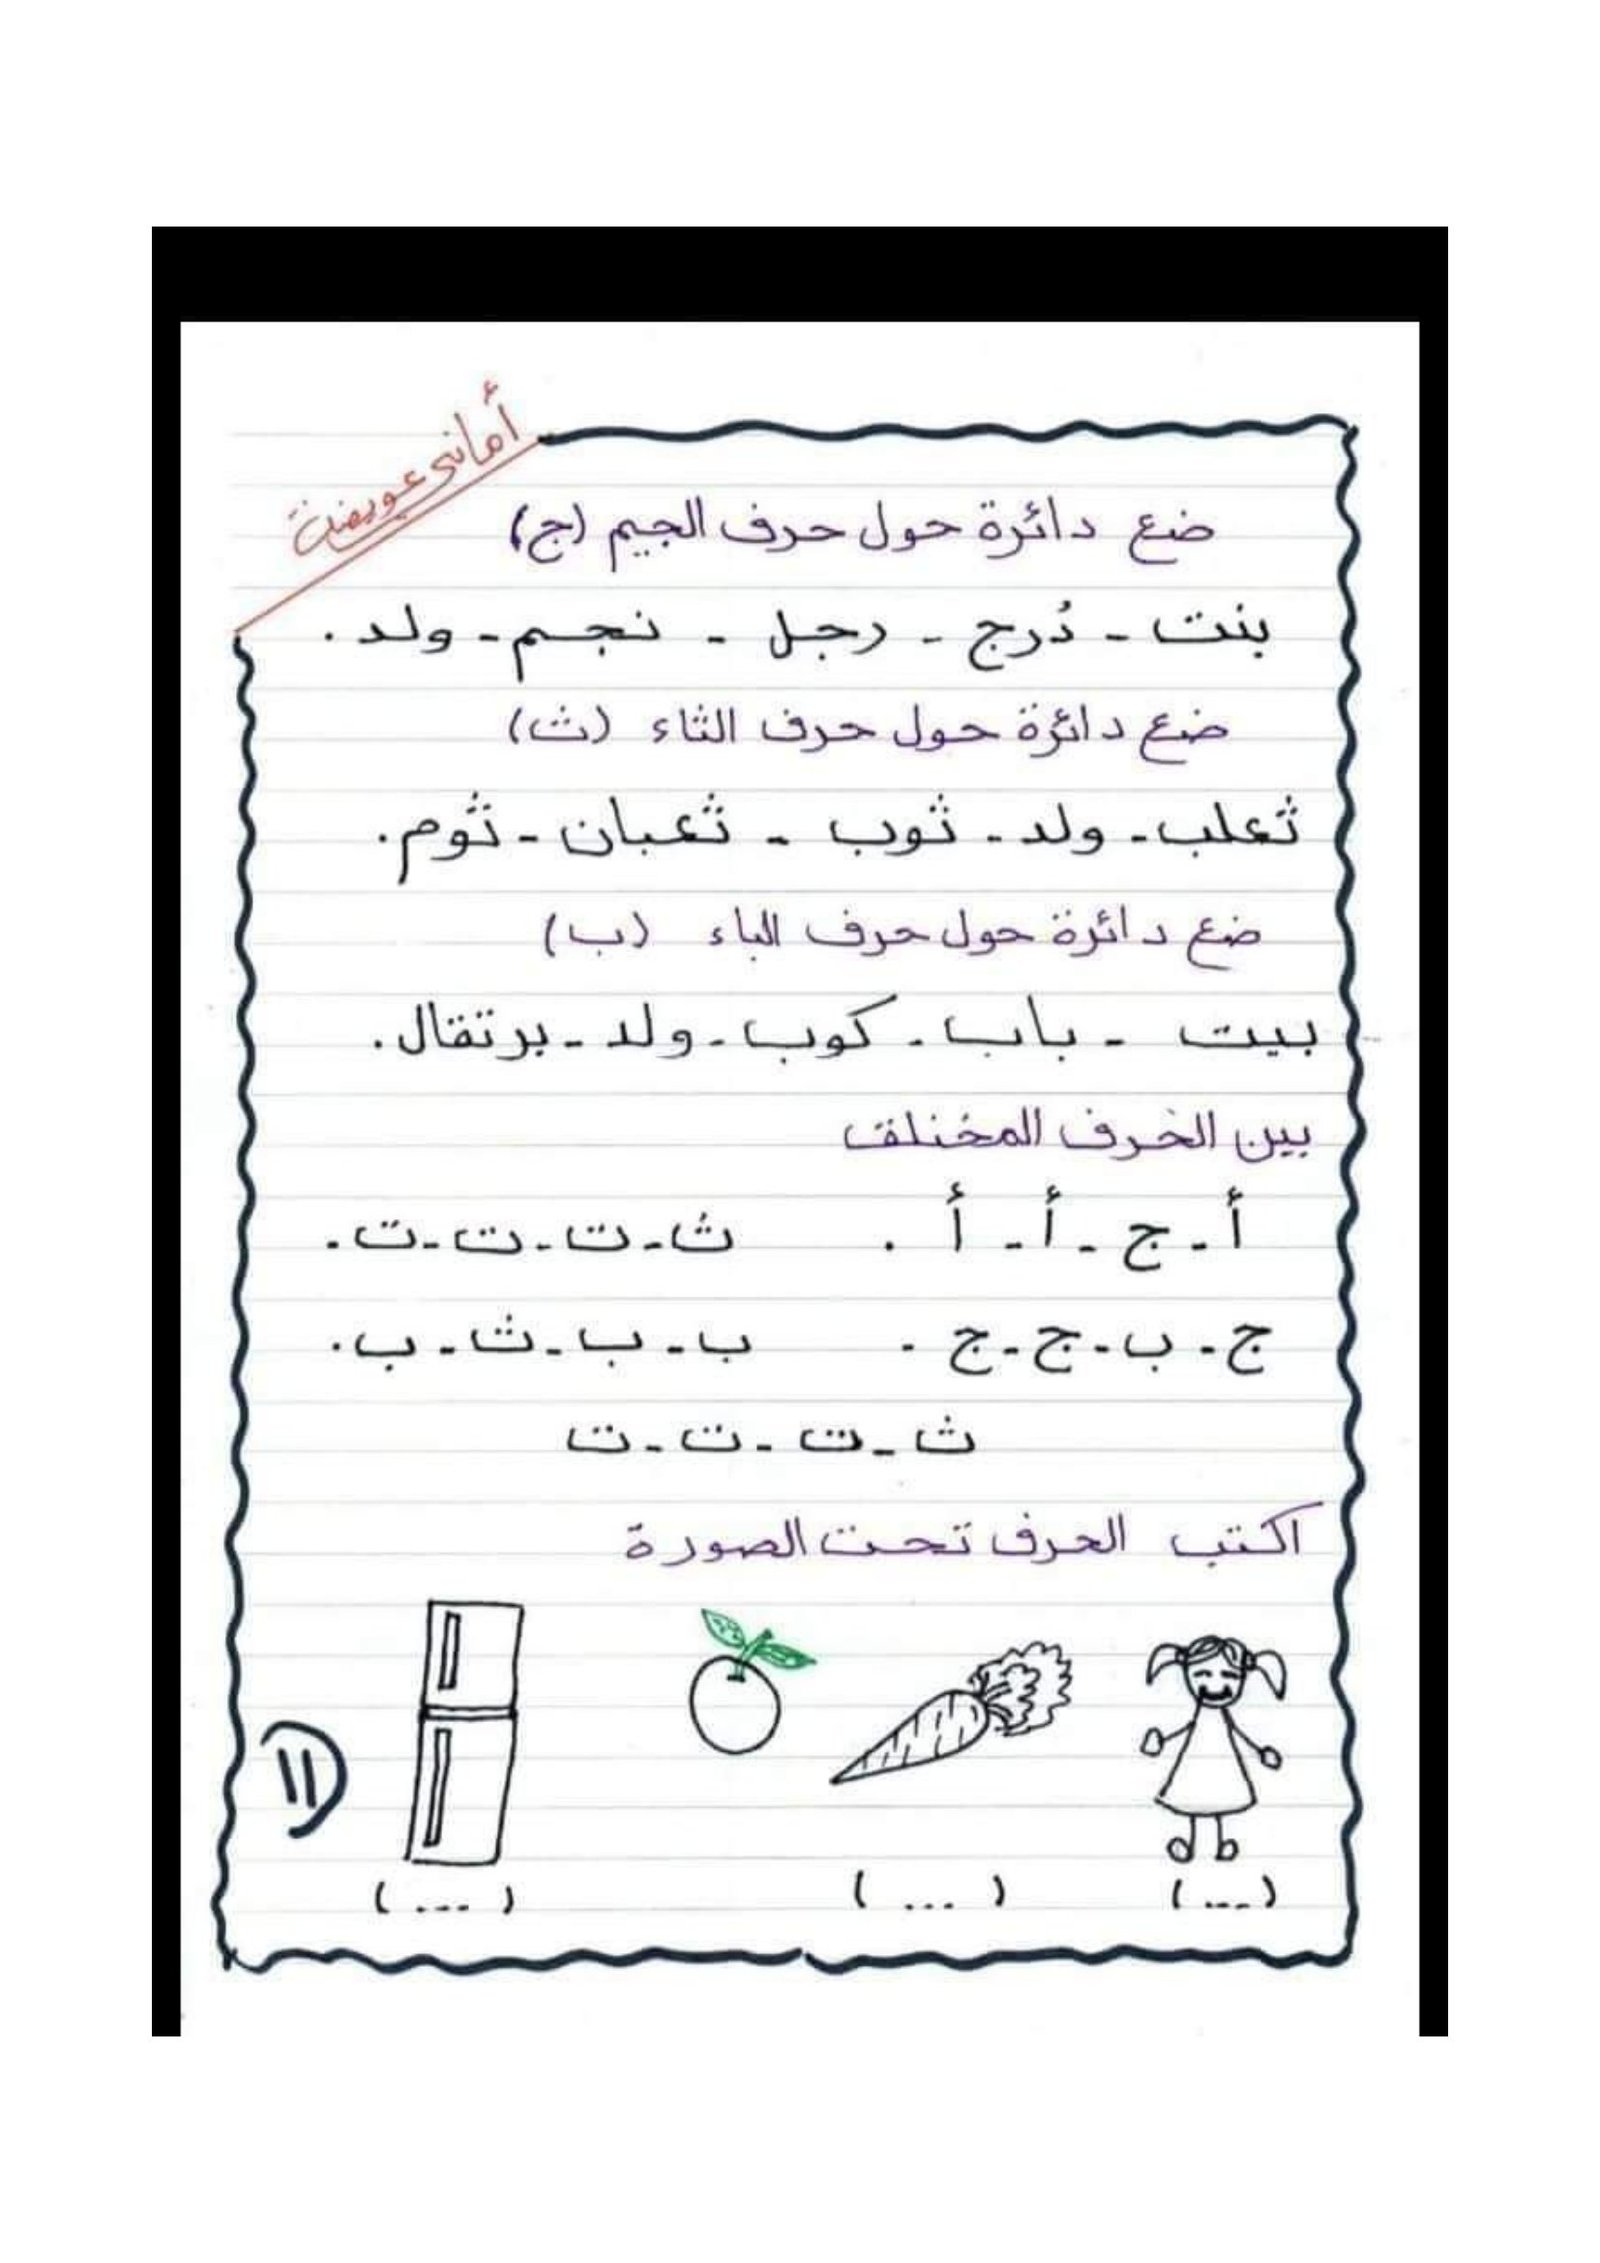 أماني عويضة
ضع دائرة حول حرف الجيم (ج)
بنت - دُرج - رجل - نجم - ولد .
ضع دائرة حول حرف الثاء (ث)
ثعلب - ولد - ثوب - ثعبان - ثوم .
ضع دائرة حول حرف الباء (ب)
بيت - باب - كوب - ولد - برتقال .
بين الحرف المختلف
أ - ج - أ - أ . ث - ت - ت - ت .
ج - ب - ج - ج . ب - ب - ث - ب .
ث - ت - ت - ت
اكتب الحرف تحت الصورة
١١
(...) (...) (...)